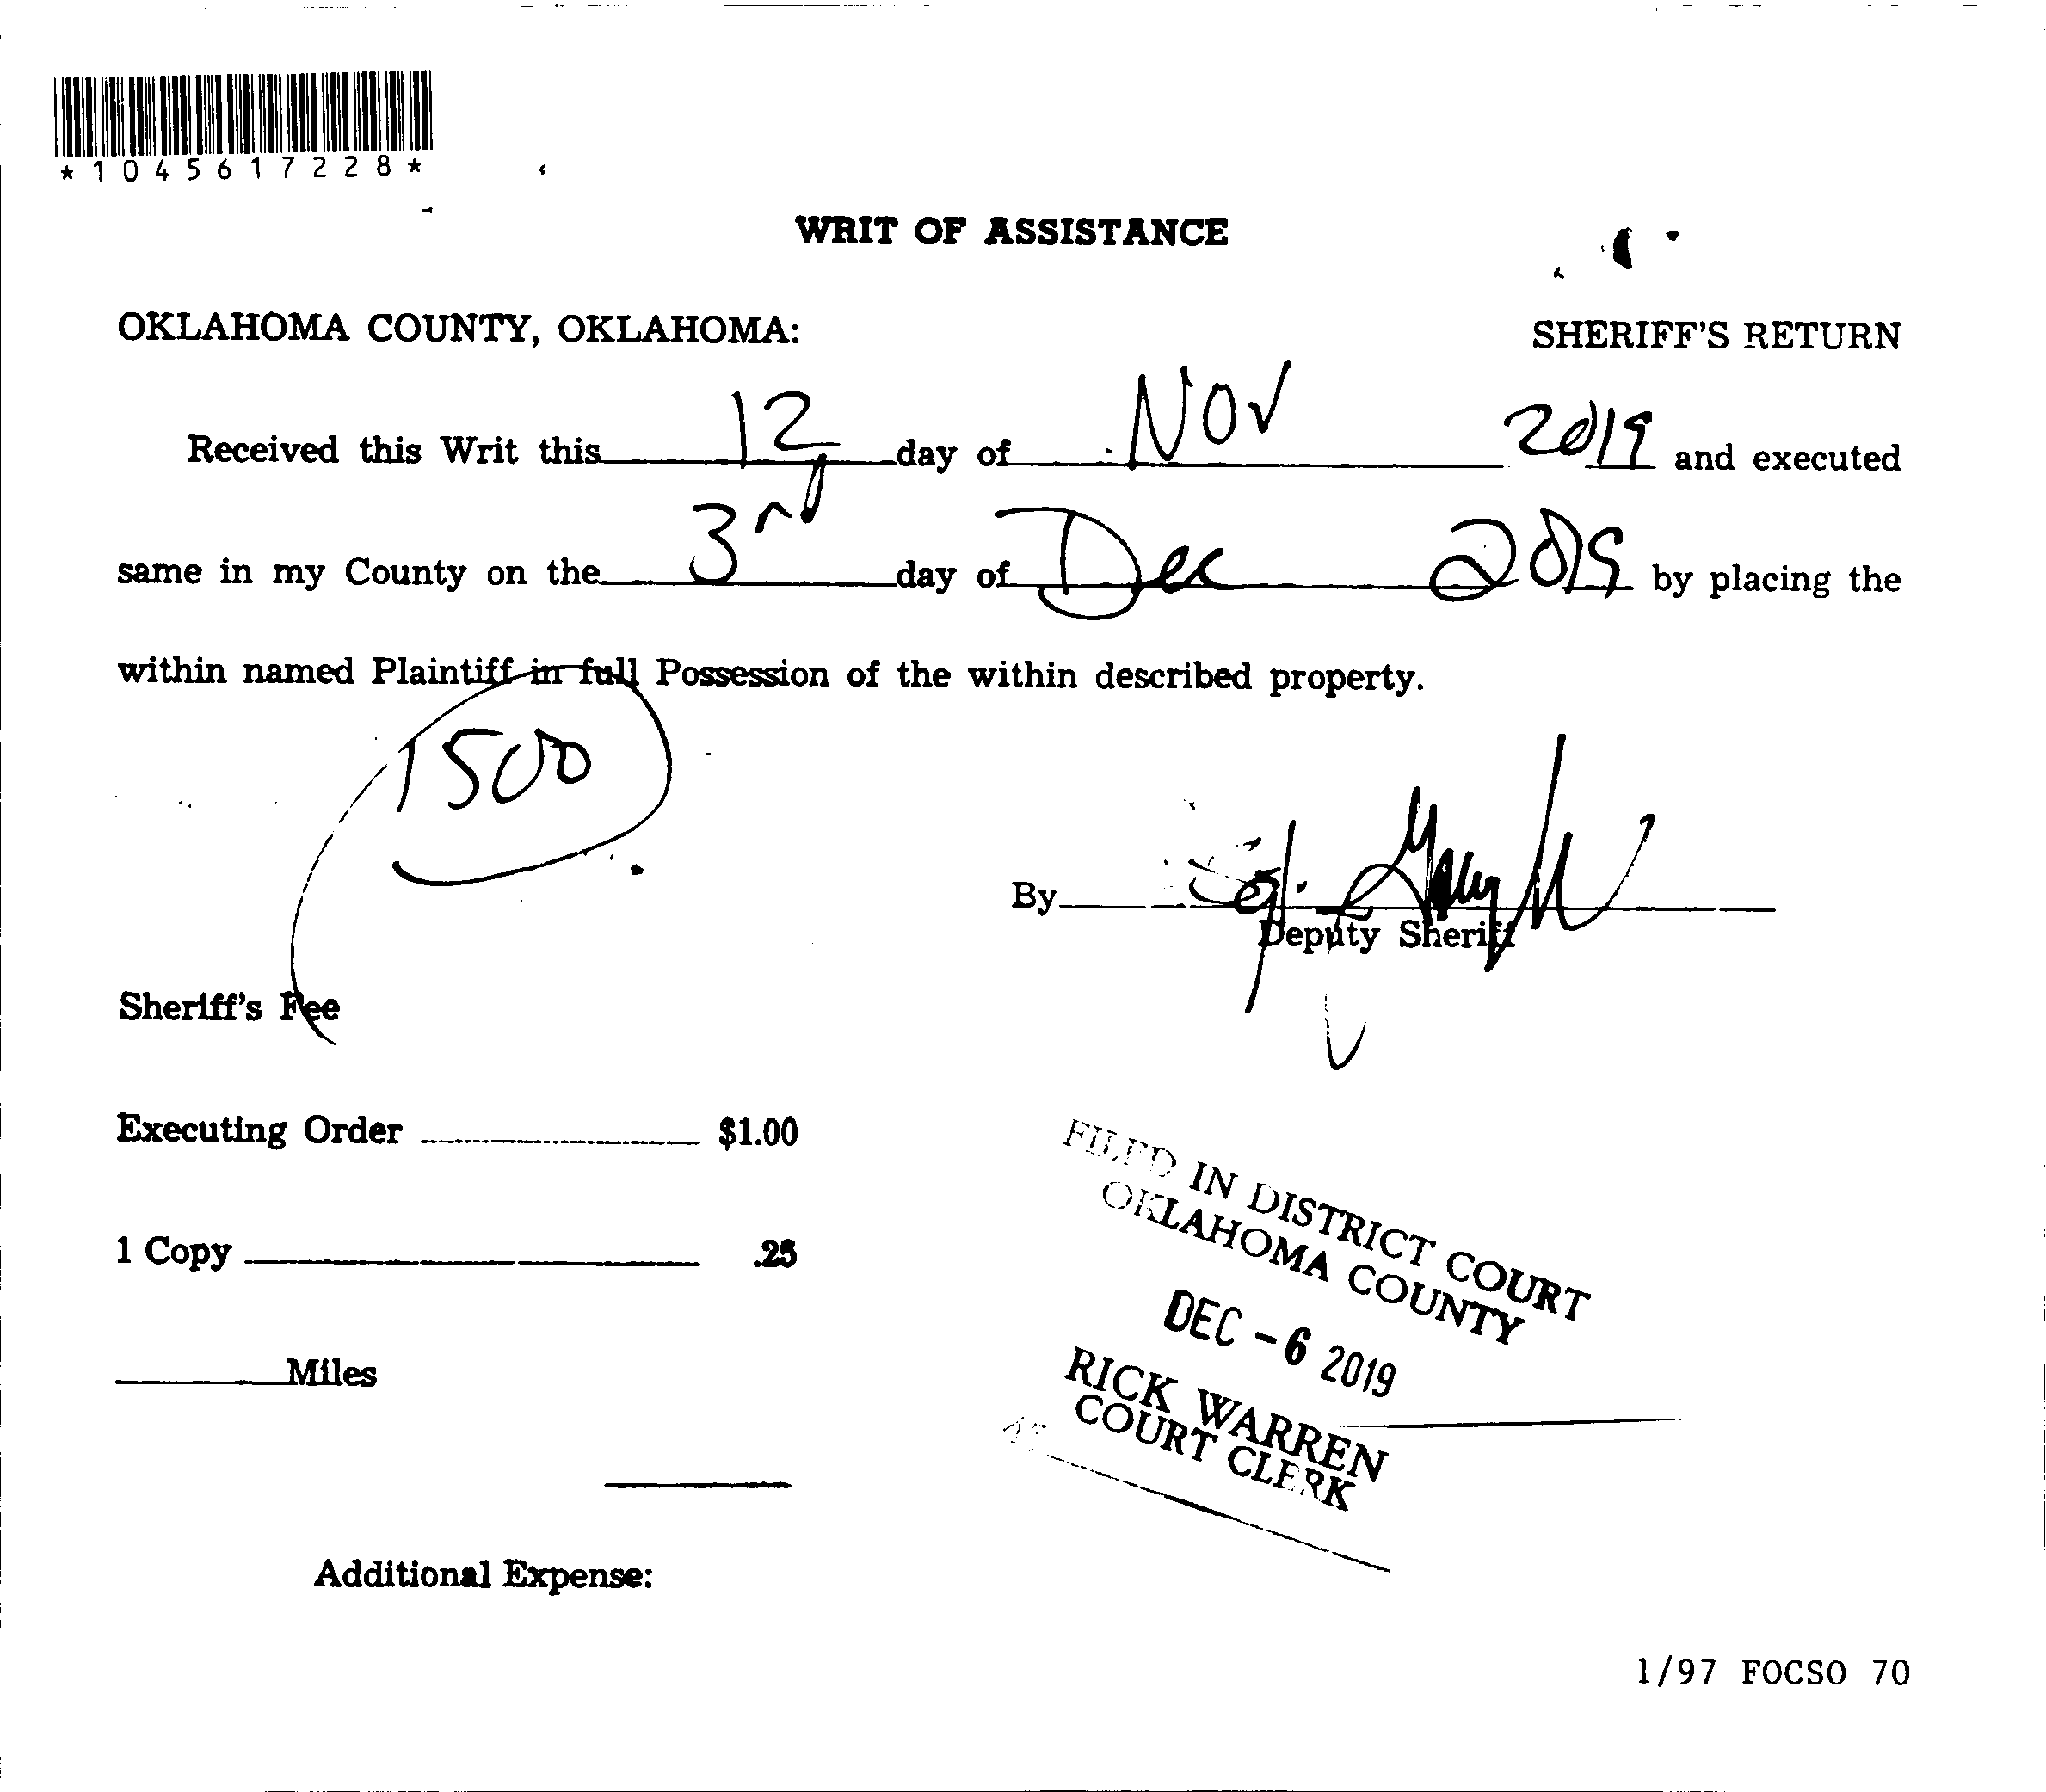 *1045617228*
WRIT OF ASSISTANCE
OKLAHOMA COUNTY, OKLAHOMA: SHERIFF'S RETURN
Received this Writ this 12 day of Nov 2019 and executed
same in my County on the 3rd day of Dec 2019 by placing the
within named Plaintiff in full Possession of the within described property.
1500
By
Deputy Sheriff
Sheriff's Fee
Executing Order $1.00
1 Copy .25
Miles
Additional Expense:
FILED IN DISTRICT COURT
OKLAHOMA COUNTY
DEC - 6 2019
RICK WARREN
COURT CLERK
1/97 FOCSO 70